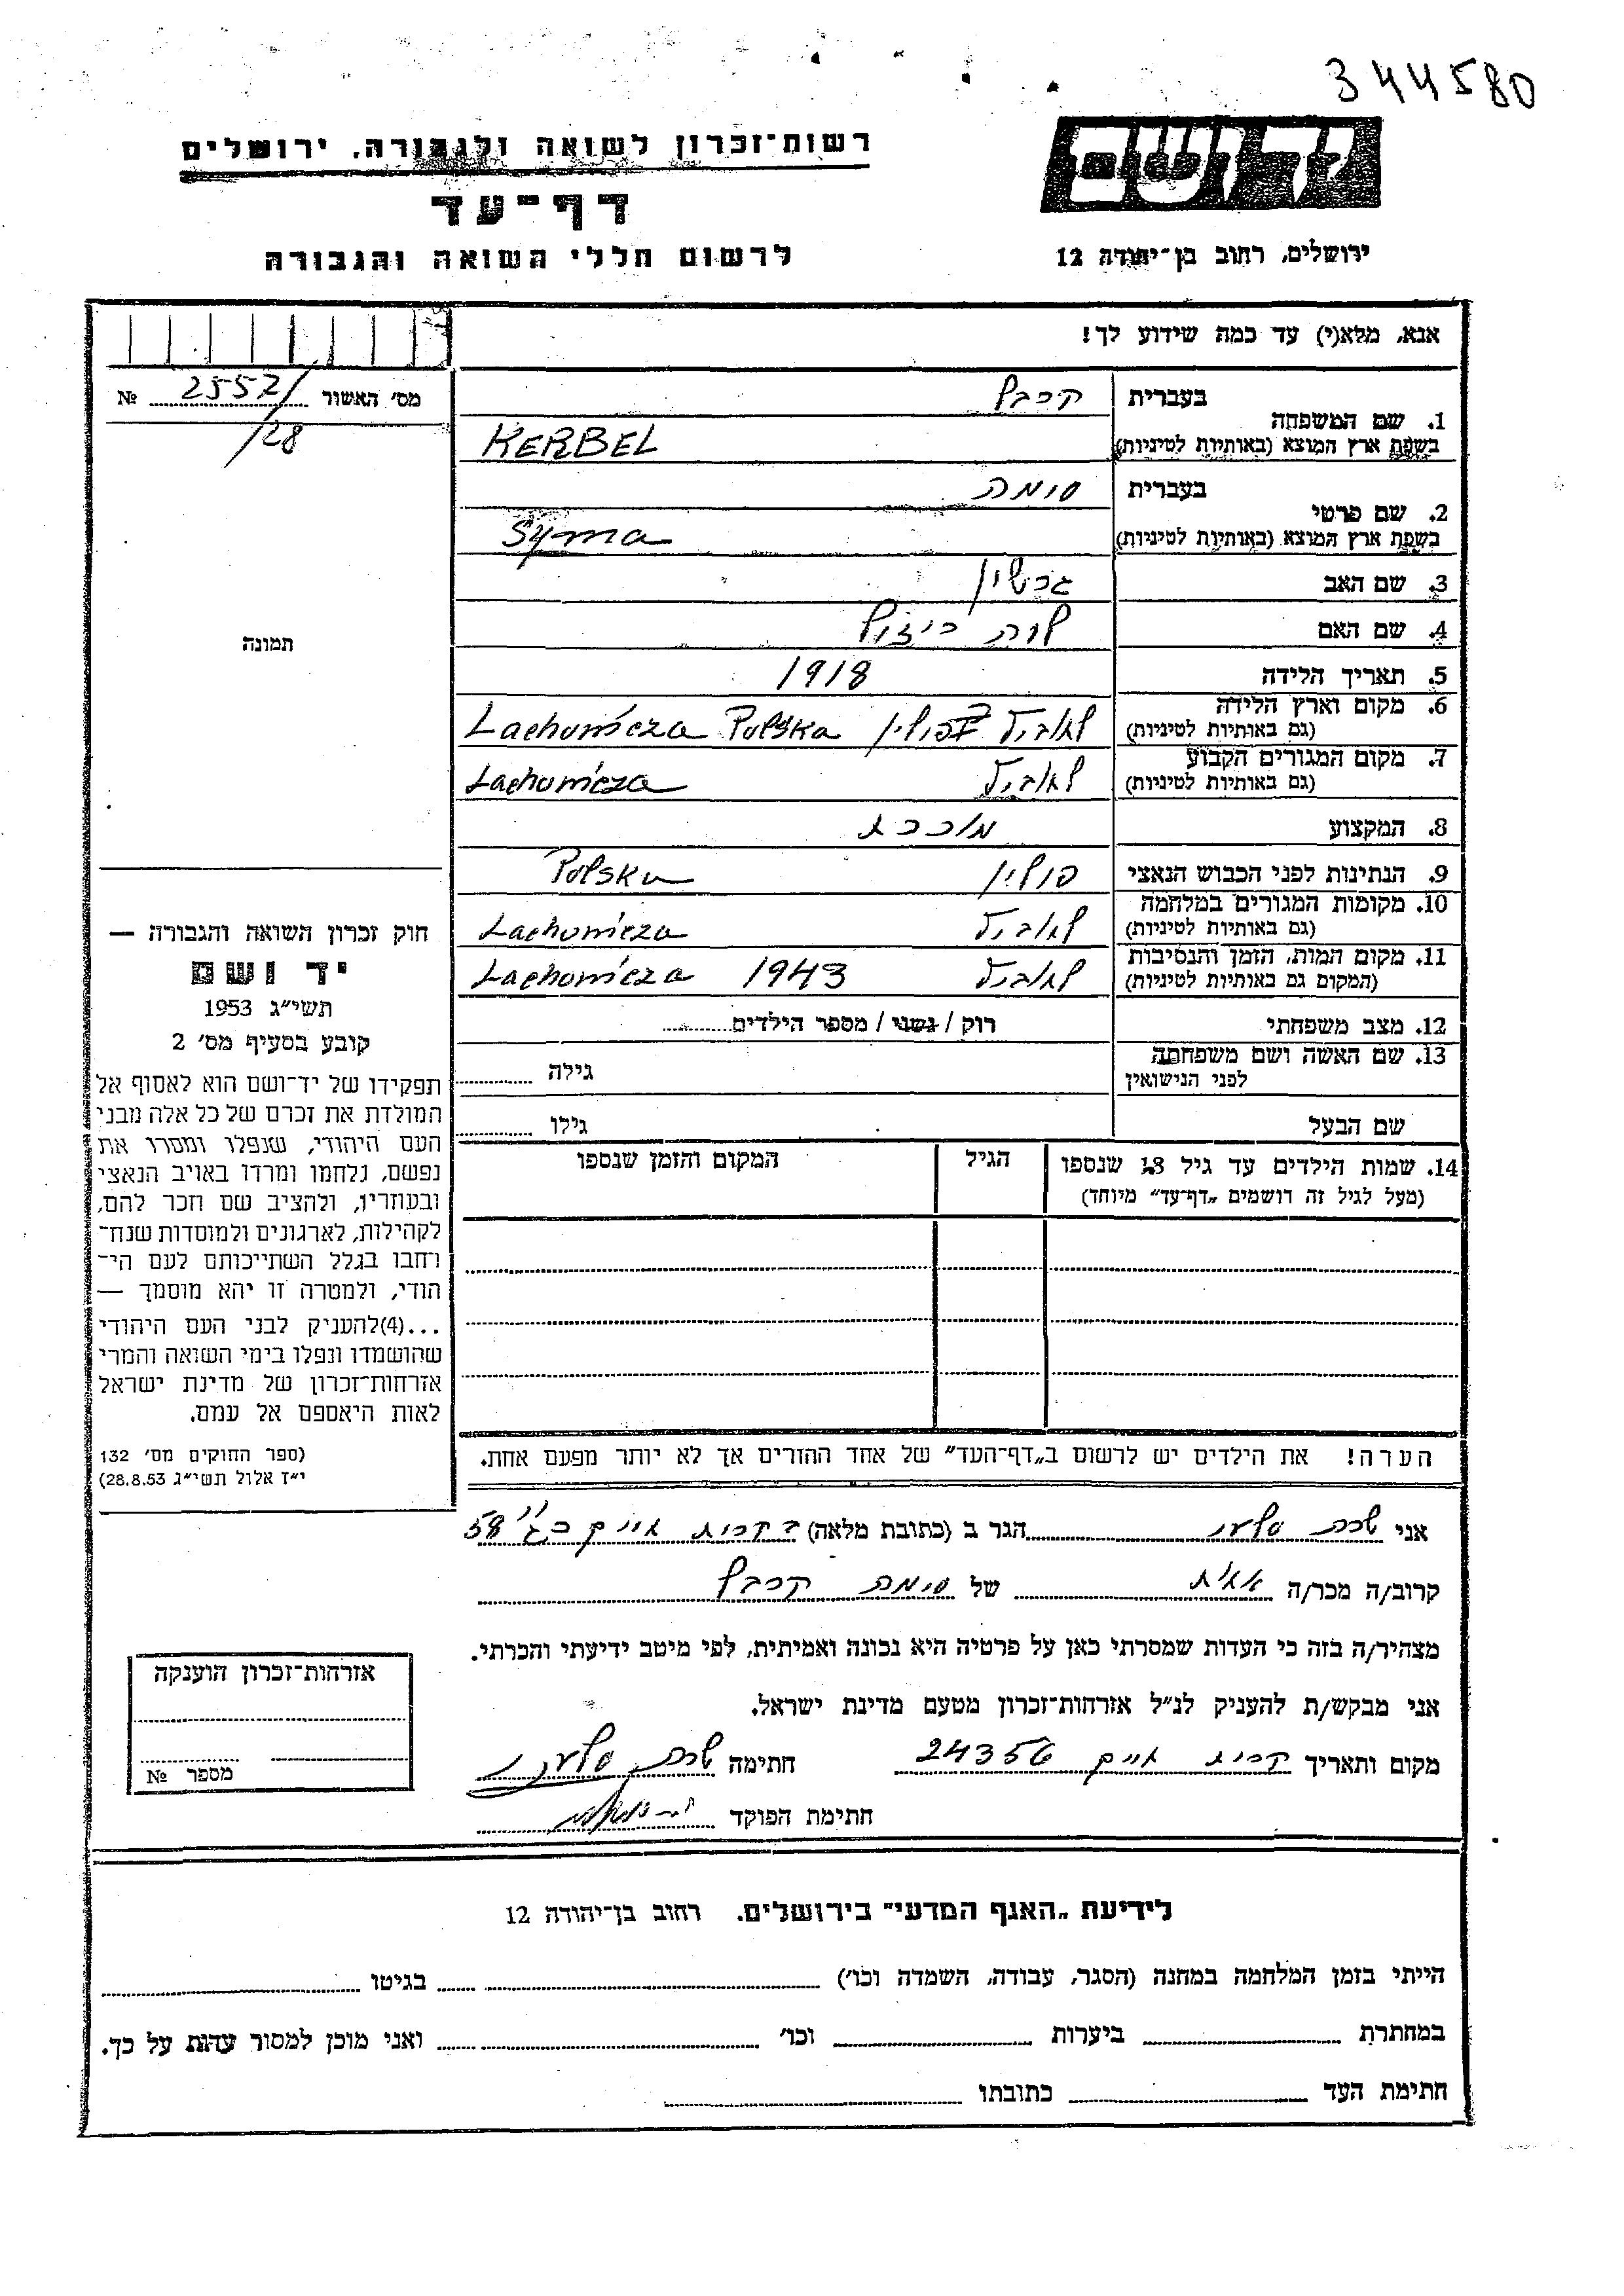 344580
יד ושם
ירושלים, רחוב בן־יהודה 12
רשות־זכרון לשואה ולגבורה, ירושלים
דף־עד
לרשום חללי השואה והגבורה
אנא, מלא(י) עד כמה שידוע לך!
מס׳ האשור 2557/ №
/28
תמונה
חוק זכרון השואה והגבורה —
יד ושם
תשי״ג 1953
קובע בסעיף מס׳ 2
תפקידו של יד־ושם הוא לאסוף אל
המולדת את זכרם של כל אלה מבני
העם היהודי, שנפלו ומסרו את
נפשם, נלחמו ומרדו באויב הנאצי
ובעוזריו, ולהציב שם וזכר להם,
לקהילות, לארגונים ולמוסדות שנח־
רחבו בגלל השתייכותם לעם הי־
הודי, ולמטרה זו יהא מוסמך —
...(4)להעניק לבני העם היהודי
שהושמדו ונפלו בימי השואה והמרי
אזרחות־זכרון של מדינת ישראל
לאות היאספם אל עמם.
(ספר החוקים מס׳ 132
י״ז אלול תשי״ג 28.8.53)
1. שם המשפחה
בעברית קרבל
בשפת ארץ המוצא (באותיות לטיניות) KERBEL
2. שם פרטי
בעברית סימה
בשפת ארץ המוצא (באותיות לטיניות) Syma
3. שם האב גרשון
4. שם האם
5. תאריך הלידה 1918
6. מקום וארץ הלידה
(גם באותיות לטיניות) Lachowicza Polska
7. מקום המגורים הקבוע
(גם באותיות לטיניות) Lachowicza
8. המקצוע מוכרת
9. הנתינות לפני הכבוש הנאצי פולין Polska
10. מקומות המגורים במלחמה
(גם באותיות לטיניות) Lachowicza
11. מקום המות, הזמן והנסיבות
(המקום גם באותיות לטיניות) Lachowicza 1943
12. מצב משפחתי רוק / נשוי / מספר הילדים
13. שם האשה ושם משפחתה
לפני הנישואין גילה
שם הבעל גילו
14. שמות הילדים עד גיל 18 שנספו הגיל המקום והזמן שנספו
(מעל לגיל זה רושמים „דף־עד״ מיוחד)
הערה! את הילדים יש לרשום ב„דף־העד״ של אחד ההורים אך לא יותר מפעם אחת.
אני שרה הגר ב (כתובת מלאה) בקרית
קרוב/ה מכר/ה אחות של סימה קרבל
מצהיר/ה בזה כי העדות שמסרתי כאן על פרטיה היא נכונה ואמיתית, לפי מיטב ידיעתי והכרתי.
אני מבקש/ת להעניק לנ״ל אזרחות־זכרון מטעם מדינת ישראל.
מקום ותאריך קרית 24356 חתימה שרה
חתימת הפוקד
אזרחות־זכרון הוענקה
מספר №
לידיעת „האגף המדעי״ בירושלים. רחוב בן־יהודה 12
הייתי בזמן המלחמה במחנה (הסגר, עבודה, השמדה וכו׳) בגיטו
במחתרת ביערות וכו׳ ואני מוכן למסור עדות על כך.
חתימת העד כתובתו